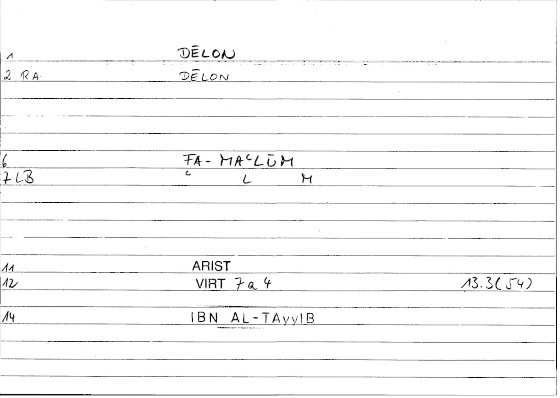 1 DĒLON
2 RA DĒLON
6 FA-MAʿLŪM
7 LB ʿ L M
11 ARIST
12 VIRT 7a4 13.3(54)
14 IBN AL-TAyyIB